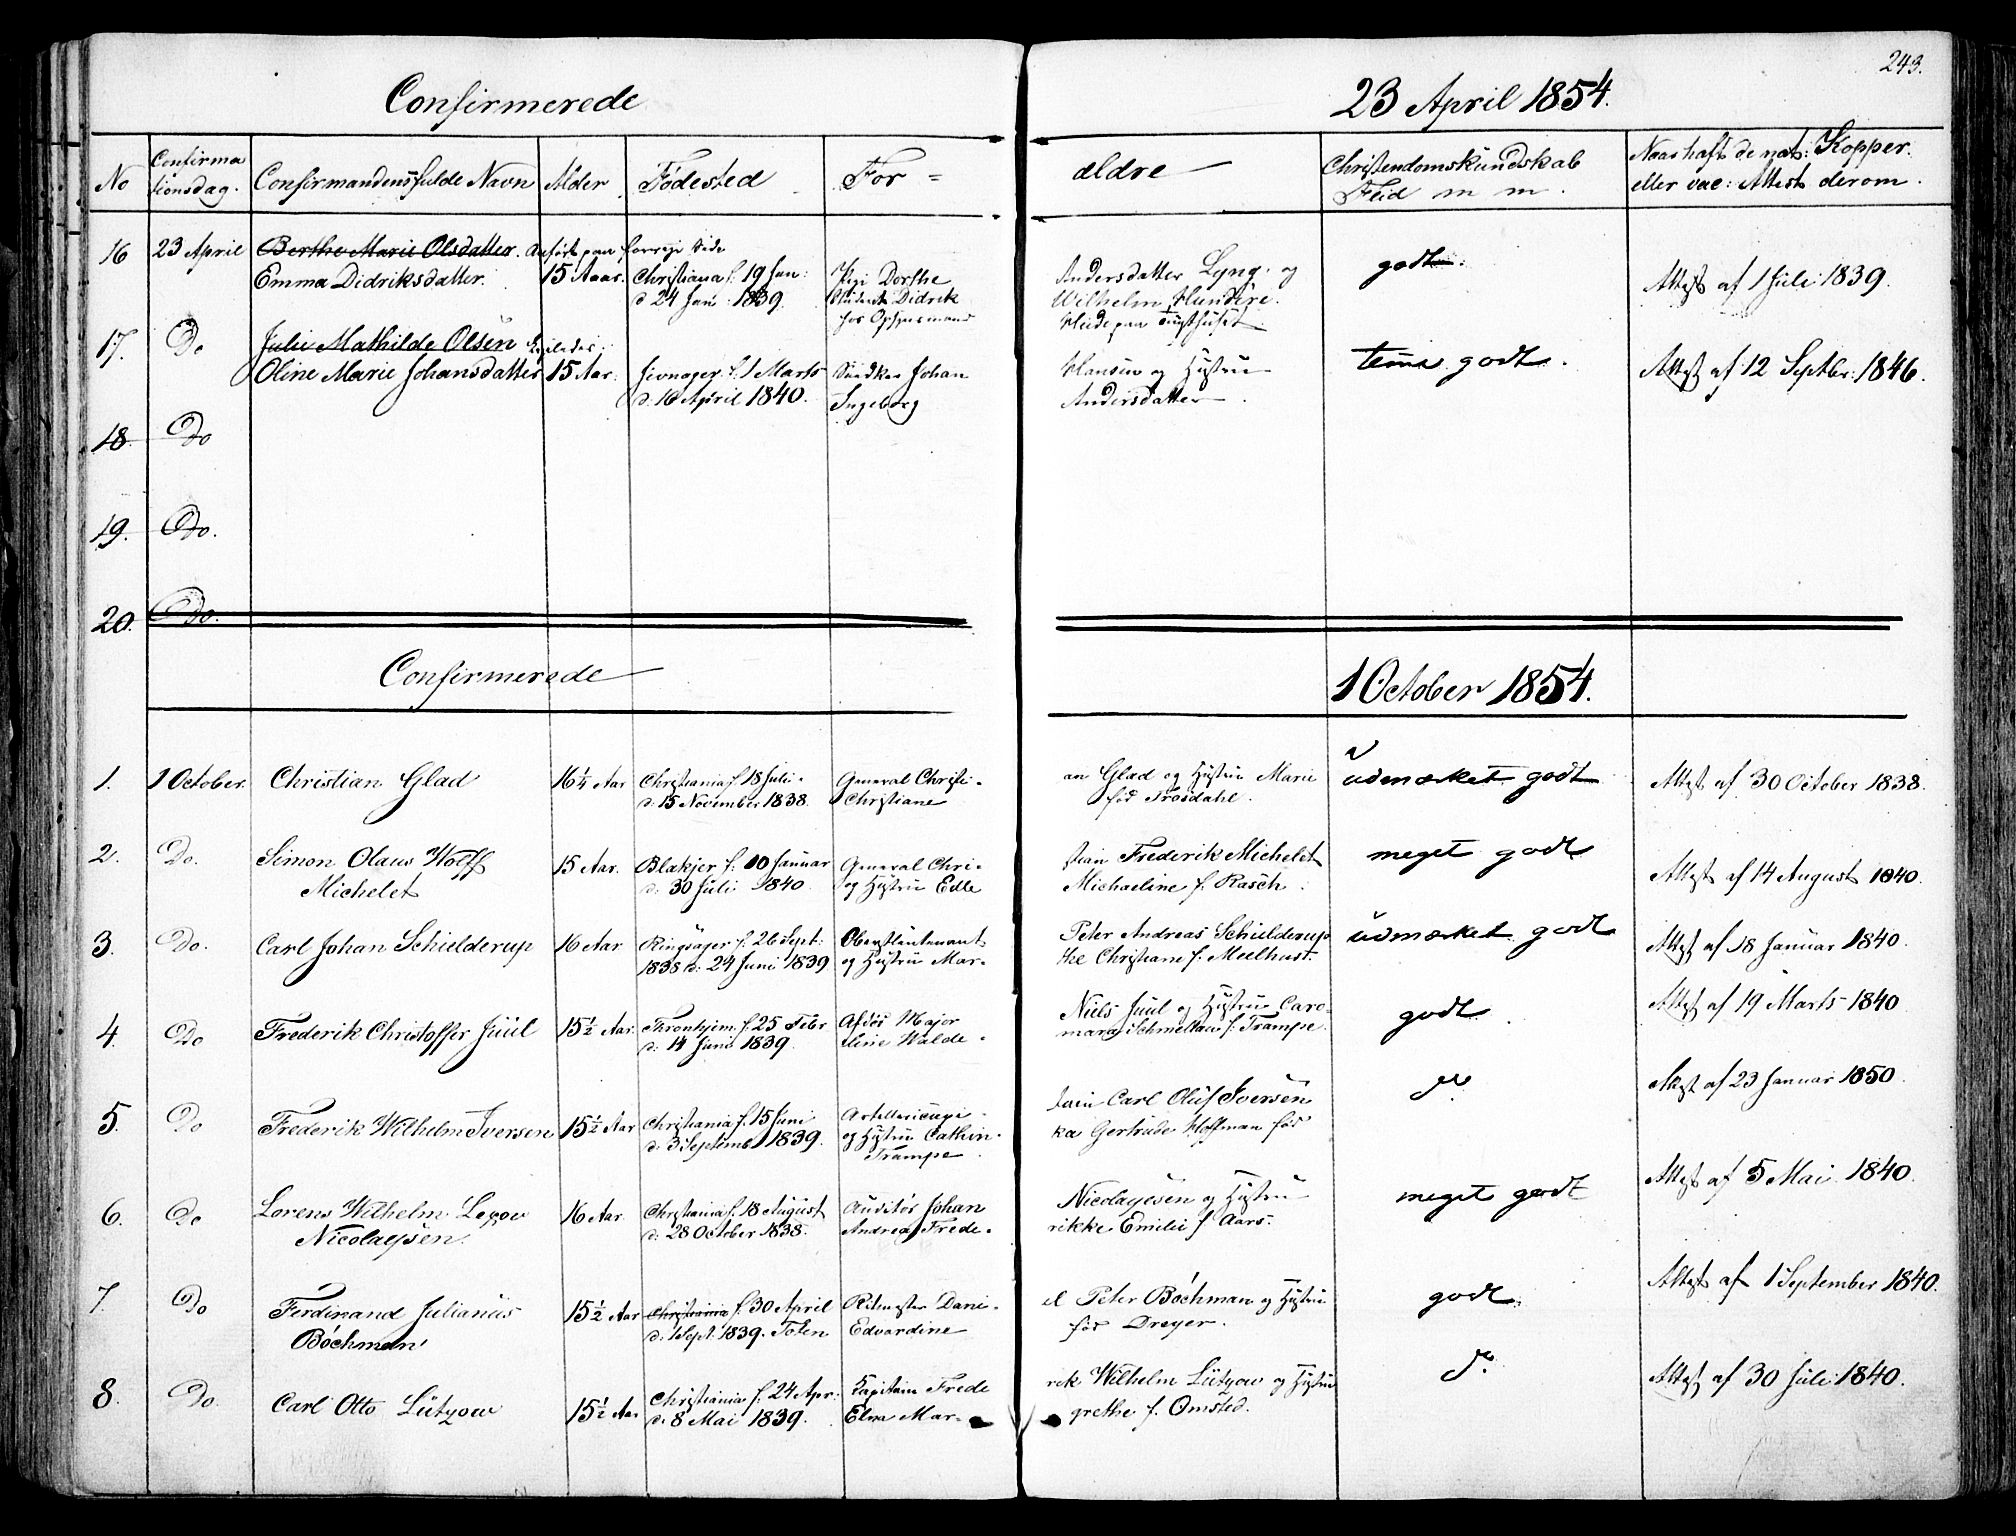 243.
Confirmerede 23 April 1854.
No Confirma tionsdag. Confirmandens fulde Navn Alder Fødested For= ældre Christendomskundskab Flid m m. Naar haft de nat: Kopper. eller vac: Attest derom.
16 23 April Berthe Marie Olsdatter. Anført paa forrige Side
Emma Didriksdatter. 15 Aar. Christiania f. 19 Jan: Pige Dorthe Andersdatter Lyng. og godt. Attest af 1 Juli 1839.
d. 24 1839. Student Didrik Wilhelm
paa Tugthuset.
17. Do Julie Mathilde Olsen
Oline Marie Johansdatter 15 Aar. Jevnager f. 1 Marts Snedker Johan Hansen og Hustru temi godt. Attest af 12 Septbr: 1846.
d. 16 April 1840. Ingeborg Andersdatter.
18. Do
19. Do.
20. Do.
Confirmerede 1 October 1854.
1. 1 October. Christian Glad 16¼ Aar Christiania f. 18 Juli. General Christi- an Glad og Hustru Marie udmærket godt Attest af 30 October 1838.
d. 15 November 1838. Christiane fød Trosdahl.
2. Do. Simon Olaus Wolff 15 Aar. Blakjer f. 10 Januar General Chri- stian Frederik Michelet meget godt Attest af 14 August 1840.
Michelet d. 30 Juli 1840. og Hustru Edle Michaeline f. Rasch.
3. Do. Carl Johan Schielderup 16 Aar Ringsager f. 26 Sept: Oberstlieutenant Peter Andreas Schielderup udmærket godt Attest af 18 Januar 1840.
1838 d. 24 Juni 1839 og Hustru Mar- the Christiane f. Meelhust.
4. Do Frederik Christoffer Juul 15½ Aar. Thronhjem f. 25 Febr Afdøe Major Niels Juul og Hustru Caro- godt Attest af 19 Marts 1840
d. 14 Juni 1839. line Walde- mara Schmettau f. Trampe.
5. Do Frederik Wilhelm Iversen 15½ Aar Christiania f. 15 Juni Carl Oluf Iversen do. Attest af 23 Januar 1850.
d. 3 Septemb 1839. og Hustru Cathin- ka Gertrude Hoffman fød
Trampe.
6. Do Lorens Wilhelm Lepow 16 Aar. Christiania f. 18 August Auditør Johan Nicolayesen og Hustru meget godt Attest af 5 Mai 1840.
Nicolaysen. d. 28 October 1838. Andrea Frede- rikke Emilie f. Aars.
7. Do Ferdinand Julianus 15½ Aar Christiania f. 30 April Ritmester Dani- el Peter Bøchman og Hustru godt. Attest af 1 September 1840.
Bøchman d. 1 Sept. 1839. Toten Edvardine fød Dreyer.
8. Do. Carl Otto Lützow 15½ Aar Christiania f. 24 Apr: Kapitain Frede rik Wilhelm Lützow og Hustru do. Attest af 30 Juli 1840.
d. 8 Mai 1839. Elna Mar- grethe f. Omsted.